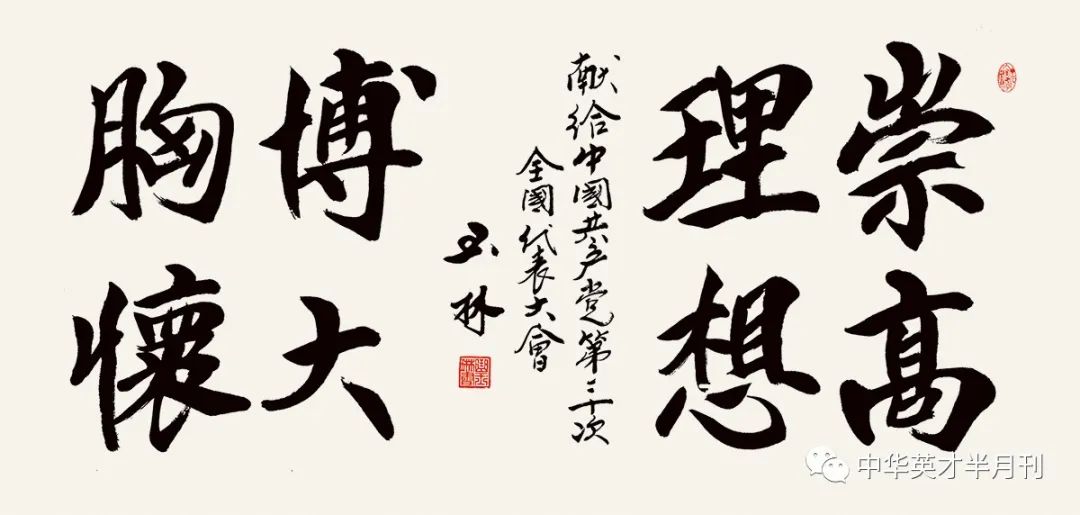 崇高
理想
献给中國共产党第二十次
全國代表大會
玉林
博大
胸懷
中华英才半月刊